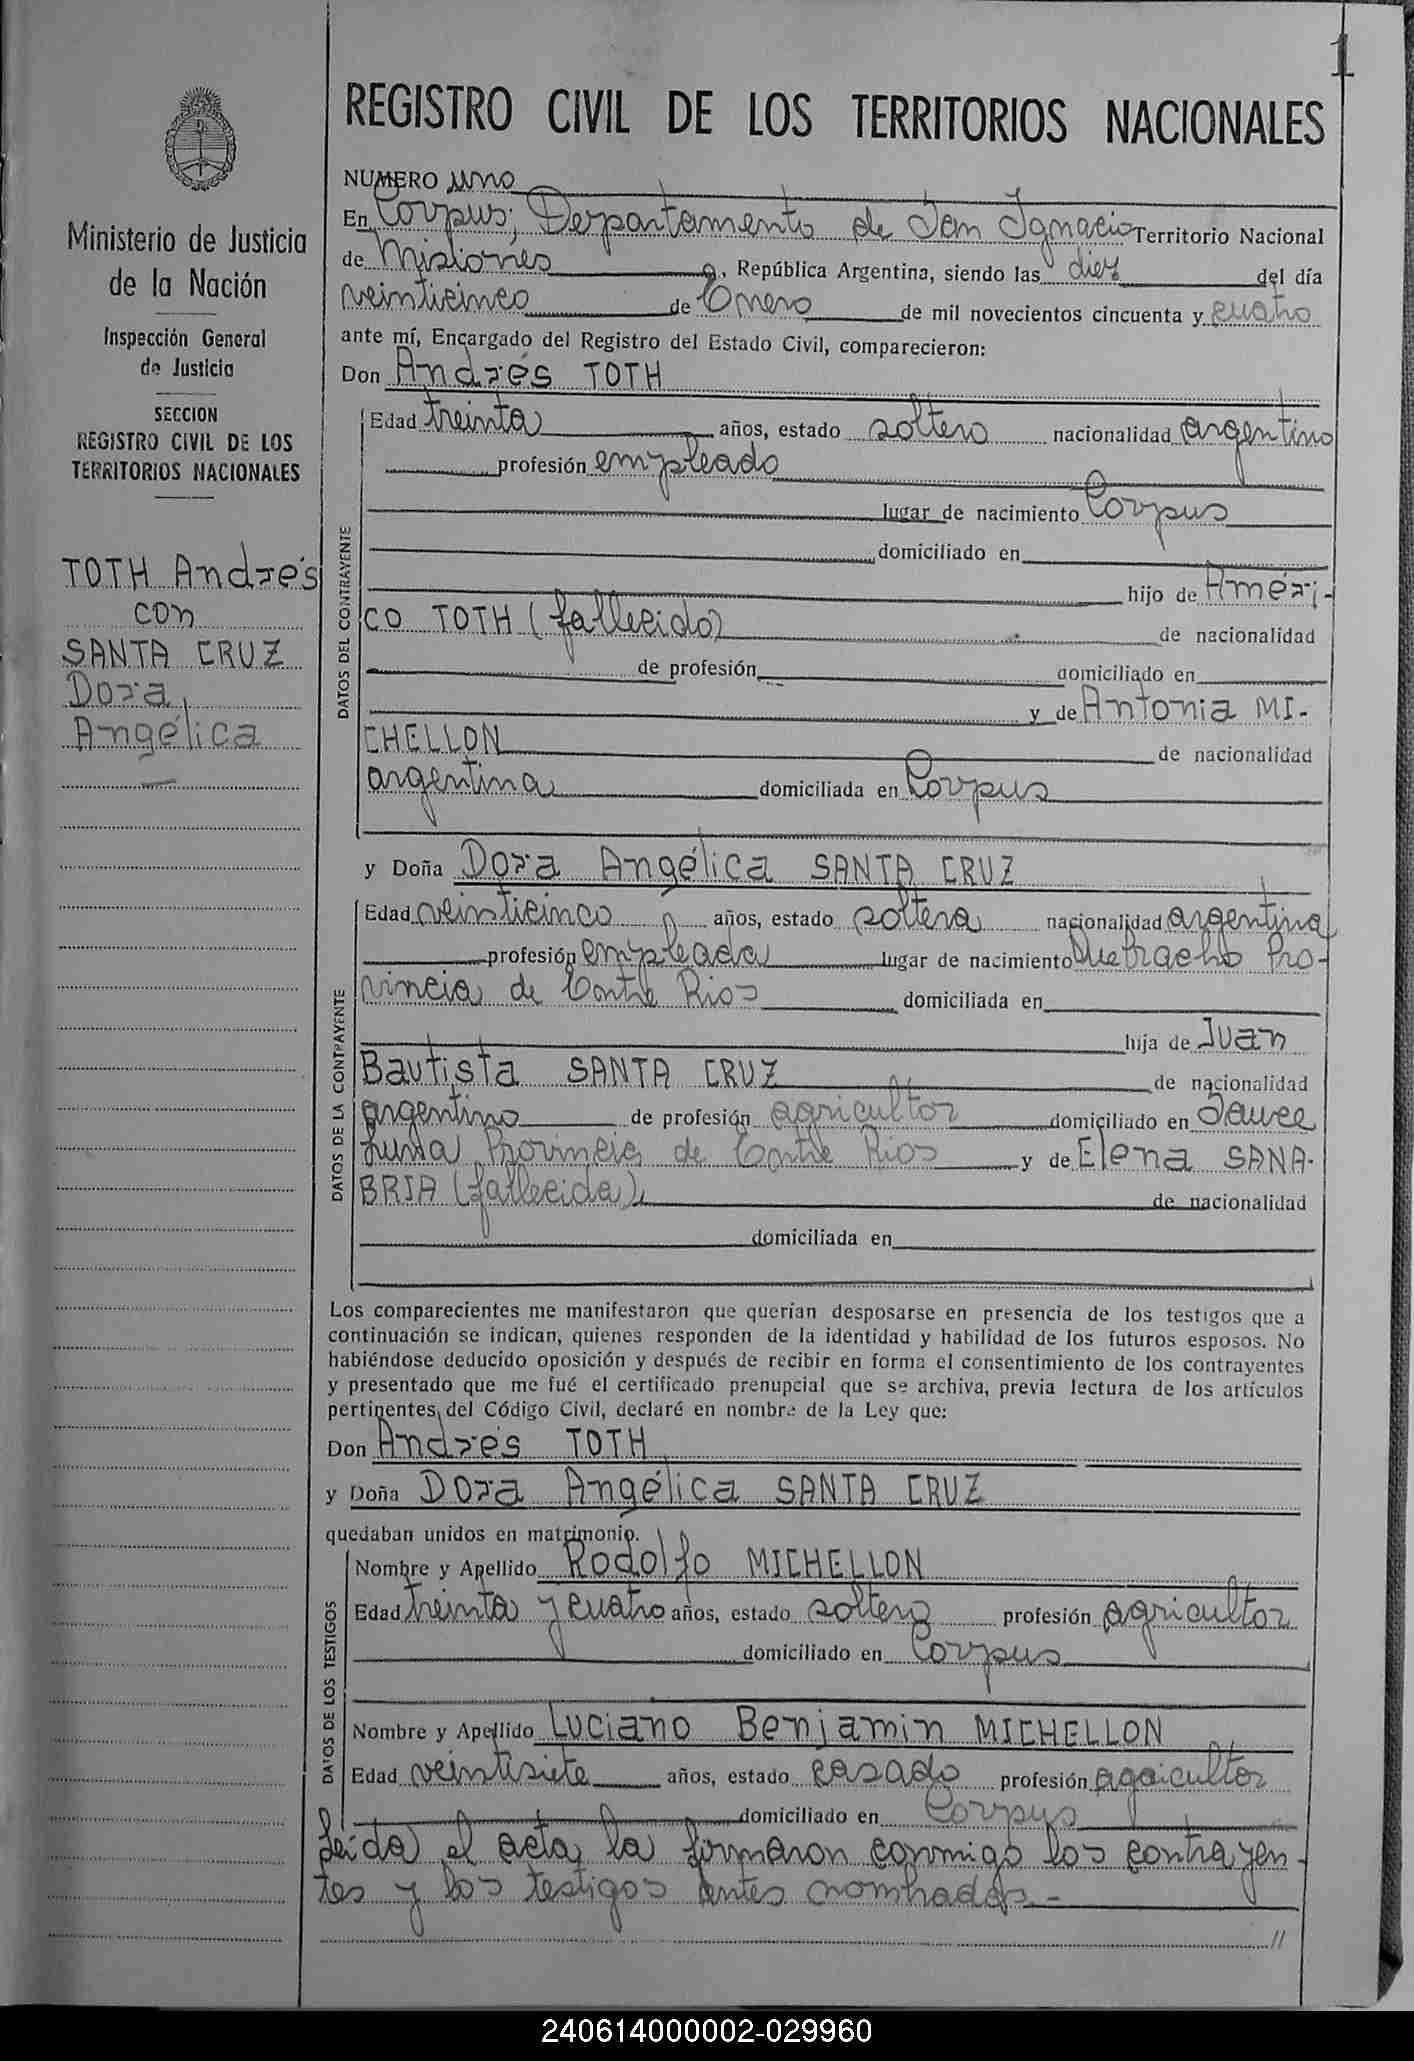 1
REGISTRO CIVIL DE LOS TERRITORIOS NACIONALES
Ministerio de Justicia
de la Nación
Inspección General
de Justicia
SECCION
REGISTRO CIVIL DE LOS
TERRITORIOS NACIONALES
TOTH Andrés
con
SANTA CRUZ
Dora
Angélica
NUMERO uno
En Corpus, Departamento de San Ignacio Territorio Nacional
de Misiones, República Argentina, siendo las diez del día
veinticinco de Enero de mil novecientos cincuenta y cuatro
ante mí, Encargado del Registro del Estado Civil, comparecieron:
Don Andrés TOTH
DATOS DEL CONTRAYENTE
Edad treinta años, estado soltero nacionalidad argentino
profesión empleado
lugar de nacimiento Corpus
domiciliado en
hijo de Améri-
co TOTH (fallecido) de nacionalidad
de profesión domiciliado en
y de Antonia MI-
CHELLON de nacionalidad
argentina domiciliada en Corpus
y Doña Dora Angélica SANTA CRUZ
DATOS DE LA CONTRAYENTE
Edad veinticinco años, estado soltera nacionalidad argentina
profesión empleada lugar de nacimiento Pro-
vincia de Entre Rios domiciliada en
hija de Juan
Bautista SANTA CRUZ de nacionalidad
argentino de profesión agricultor domiciliado en Sauce
Luna Provincia de Entre Rios y de Elena SANA-
BRIA (fallecida), de nacionalidad
domiciliada en
Los comparecientes me manifestaron que querían desposarse en presencia de los testigos que a
continuación se indican, quienes responden de la identidad y habilidad de los futuros esposos. No
habiéndose deducido oposición y después de recibir en forma el consentimiento de los contrayentes
y presentado que me fué el certificado prenupcial que se archiva, previa lectura de los artículos
pertinentes del Código Civil, declaré en nombre de la Ley que:
Don Andrés TOTH
y Doña Dora Angélica SANTA CRUZ
quedaban unidos en matrimonio.
DATOS DE LOS TESTIGOS
Nombre y Apellido Rodolfo MICHELLON
Edad treinta y cuatro años, estado soltero profesión agricultor
domiciliado en Corpus
Nombre y Apellido Luciano Benjamin MICHELLON
Edad veintisiete años, estado casado profesión agricultor
domiciliado en Corpus
Leída el acta, la firmaron conmigo los contrayen-
tes y los testigos antes nombrados.-
//
240614000002-029960